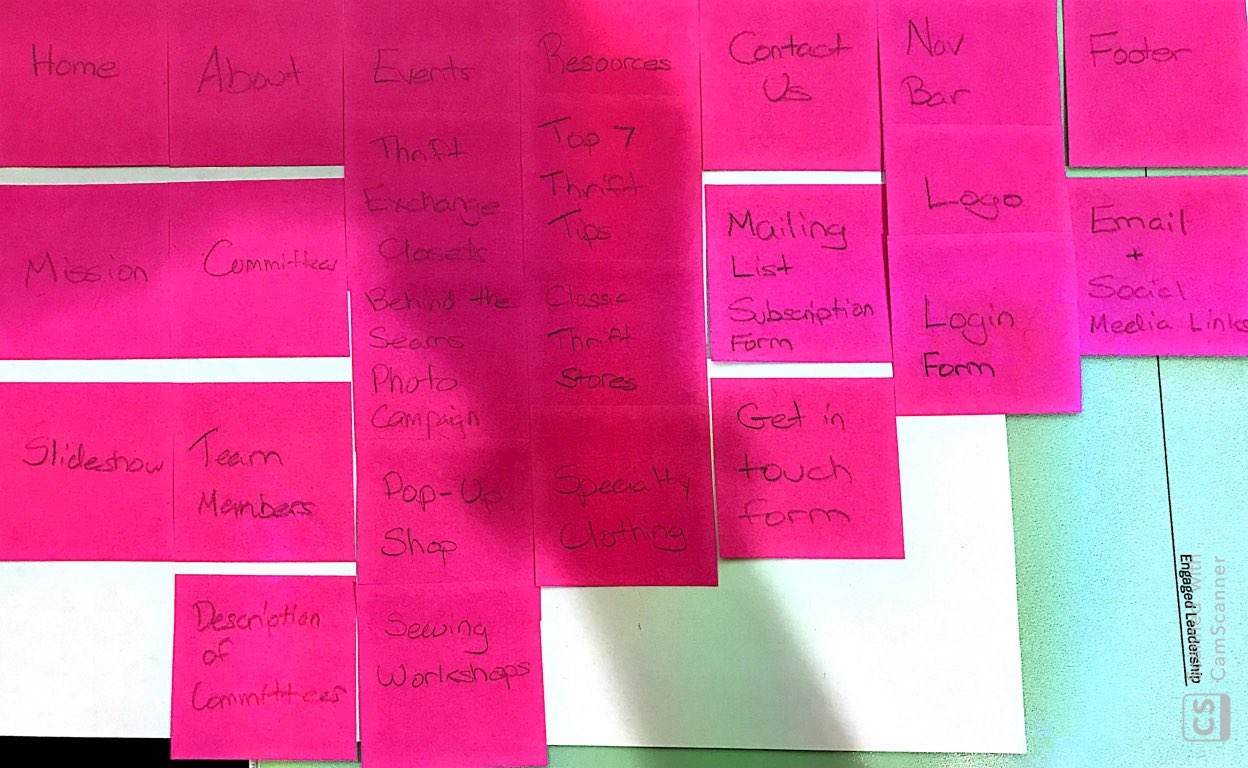 Home
Mission
Slideshow
About
Committees
Team
Members
Description
of
Committees
Events
Thrift
Exchange
Closets
Behind the
Seams
Photo
Campaign
Pop-Up
Shop
Sewing
Workshops
Resources
Top 7
Thrift
Tips
Classic
Thrift
Stores
Specialty
Clothing
Contact
Us
Mailing
List
Subscription
Form
Get in
touch
form
Nav
Bar
Logo
Login
Form
Footer
Email
+
Social
Media Links
Engaged Leadership
CS CamScanner